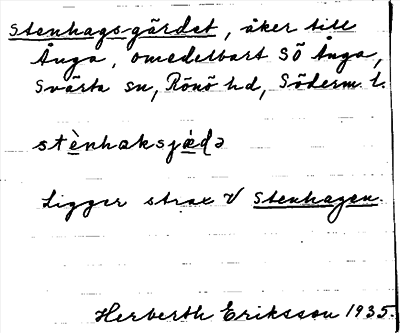 Stenhags-gärdet, åker till
Ånga, omedelbart SÖ Ånga,
Svärta sn, Rönö hd, Söderm. l.
stènhaksjæ̀ɖə
Ligger strax V Stenhagen.
Herberth Eriksson 1935.